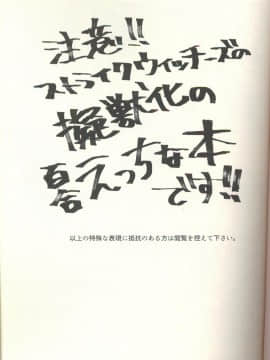 注意!!
ストライクウィッチーズの
擬獣化の
百合えっちな本
です!!
以上の特殊な表現に抵抗のある方は閲覧を控えて下さい。